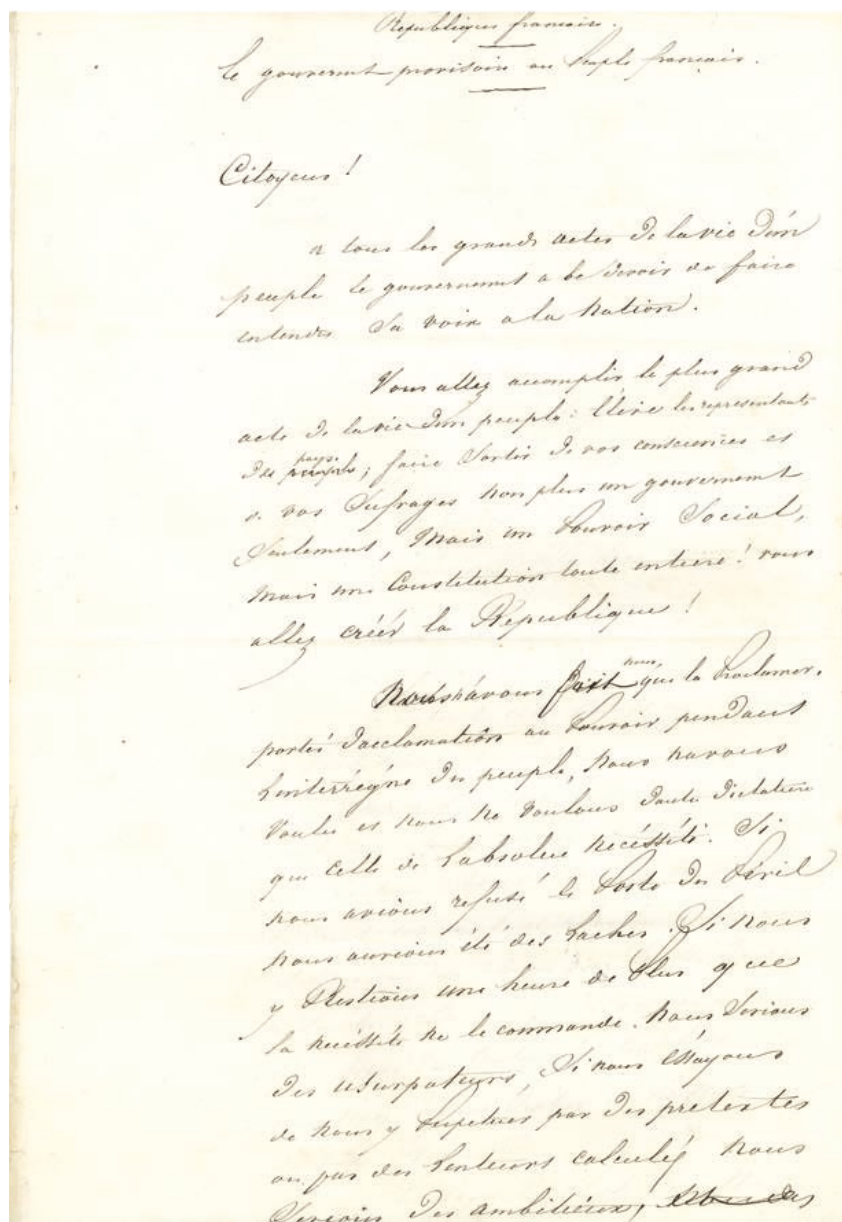 Republique francaise.
le gouvernmt provisoire au Peuple francais.
Citoyens !
a tous les grands actes de la vie d'un
peuple le gouvernement a le devoir de faire
entendre sa voix a la Nation.
Vous allez accomplir le plus grand
acte de la vie d'un peuple : Elire les representants
du pays ; faire sortir de vos consciences et
de vos sufrages non plus un gouvernement
seulement, mais un Pouvoir Social,
mais une Constitution toute entiere ! vous
allez créér la République !
Nous n'avons fait nous, que la Proclamer.
portés d'acclamation au Pouvoir pendant
L'interrégne du peuple, nous n'avons
voulu et nous ne voulons d'autre Dictature
que celle de L'absolue Nécéssité. Si
nous avions refusé le Poste du Péril
nous aurions été des Laches. Si nous
y Restions une heure de Plus que
la nécéssité ne le commande. nous serions
des usurpateurs, Si nous Essayons
de nous y Perpetuer par des pretextes
ou par des Lenteurs calculés nous
serions des ambitieux,